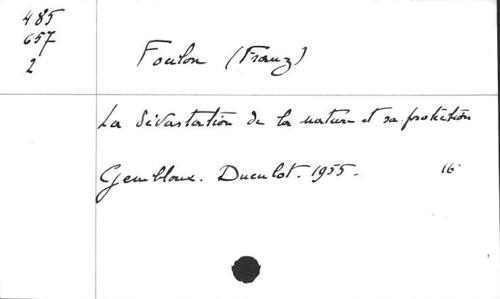 485
657
2
Foulon (Franz)
La dévastation de la nature et sa protection
Gembloux. Duculot. 1955. 16°